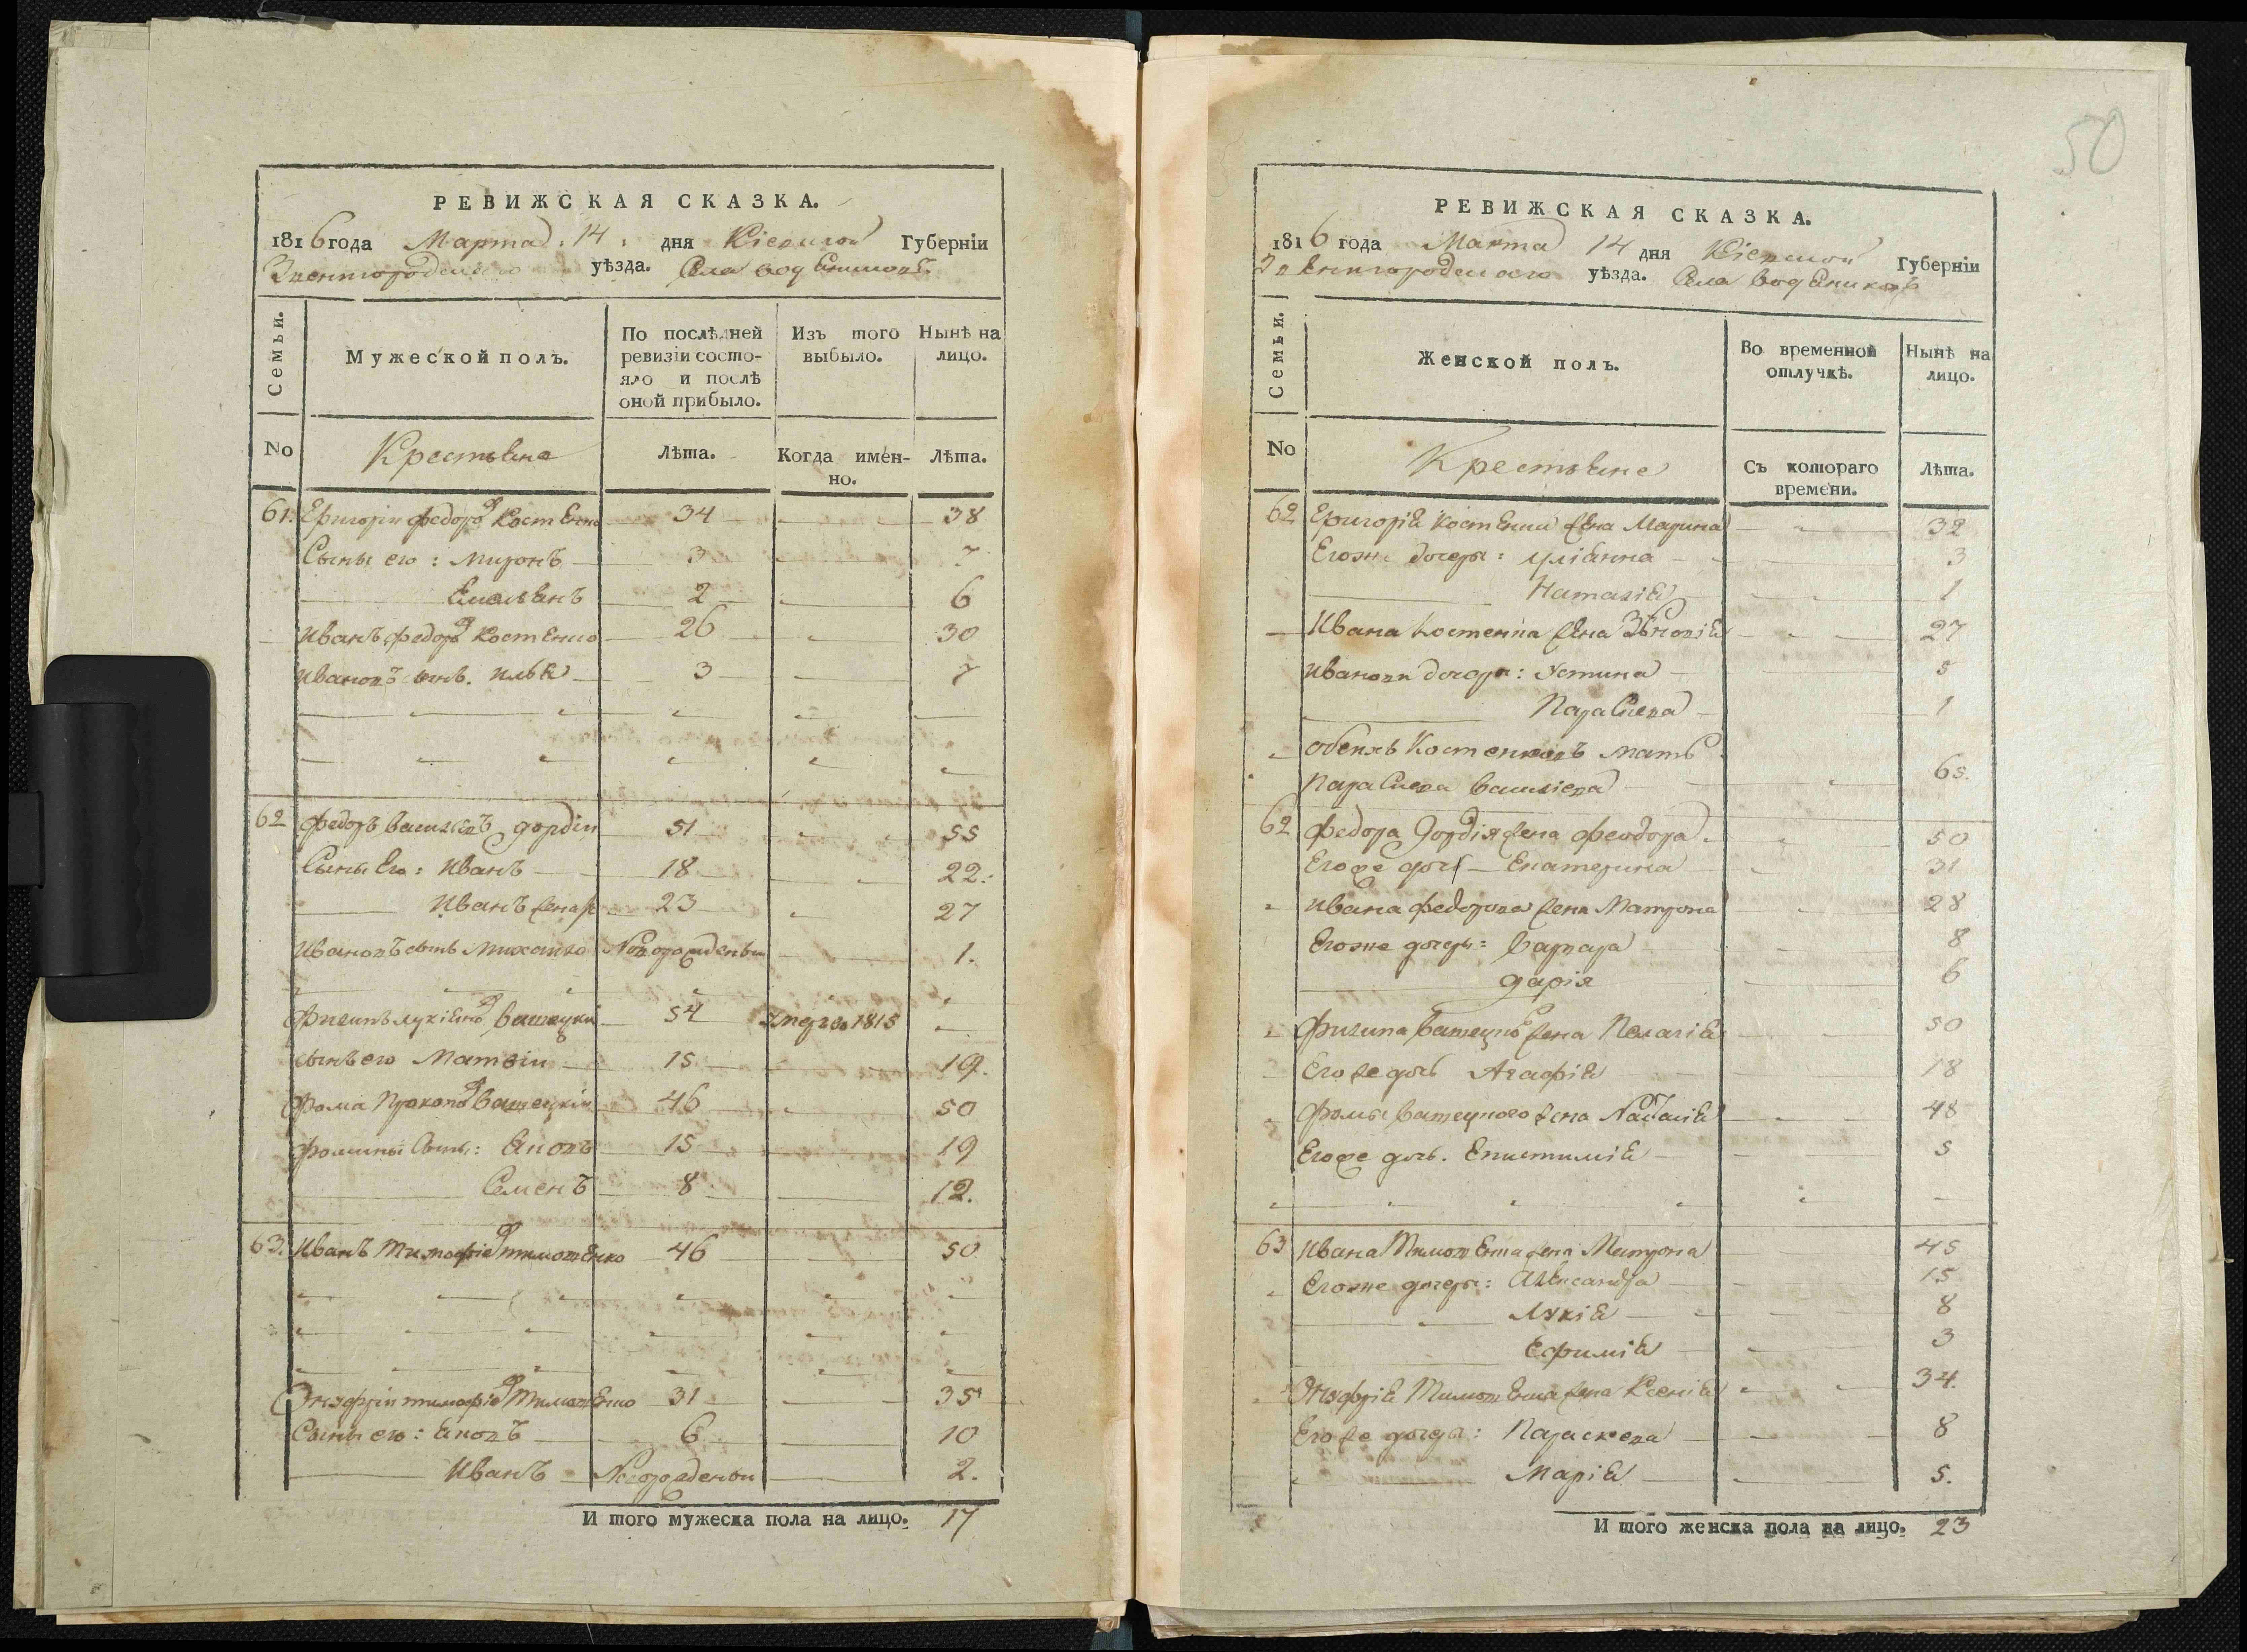 РЕВИЖСКАЯ СКАЗКА.
1816 года Марта 14 дня Кіевской Губерніи
Звенигородского уѣзда. Села Водяниковъ
Семьи.
Мужеской полъ.
По послѣдней ревизіи состо-
яло и послѣ
оной прибыло.
Изъ того выбыло.
Нынѣ на лицо.
No
Крестьяне
Лѣта.
Когда имен-
но.
Лѣта.
61. Григорій Федоров Костенко 34 38
Сыны его: Миронъ 3 7
Емельянъ 2 6
Иванъ Федоров Костенко 26 30
Ивановъ сынъ. Илья 3 7
62 Федоръ Васильевъ Гордій 51 55
Сыны Его: Иванъ 18 22.
Иванъ 23 27
Ивановъ сынъ Михайло Новорожденъ 1.
Филипъ Вашецкій 54 умерло 1815
сынъ его Матвій 15 19.
Фома Прокопов Вашецкій 46 50
Фомины Сыны: Яковъ 15 19
Семенъ 8 12.
63. Иванъ Тимофіев Тимошенко 46 50
Онуфрій Тимофіев Тимошенко 31 35
Сыны его: Яковъ 6 10
Иванъ Новорожденъ 2.
И того мужеска пола на лицо. 17
50
РЕВИЖСКАЯ СКАЗКА.
1816 года Марта 14 дня Кіевской Губерніи
Звенигородского уѣзда. Села Водяниковъ
Семьи.
Женской полъ.
Во временной
отлучкѣ.
Нынѣ на
лицо.
No
Крестьяне
Съ котораго
времени.
Лѣта.
62 Григорія Костенка жена Марина 32
Егоже дочери: Уліянна 3
Наталія 1
Ивана Костенка жена 27
Иванови дочери: Устина 5
Параскева 1
обеихъ Костенковъ мать
Параскева Василіева 65.
62 Федора Гордія жена Феодора 50
Егоже дочь Екатерина 31
Ивана Федорова жена Матрона 28
Егоже дочеры: Варвара 8
Дарія 6
Филипа Вашецкого жена Пелагія 50
Его же дочь Агафія 18
Фомы Вашецкого жена Наталія 48
Егоже дочь. Епистимія 5
63 Ивана Тимошенка жена Матрона 45
Егоже дочеры: Александра 15
Лукія 8
Ефимія 3
Онуфрія Тимошенка жена Ксенія 34.
Его же дочеры: Параскева 8
Марія 5.
И того женска пола на лицо. 23